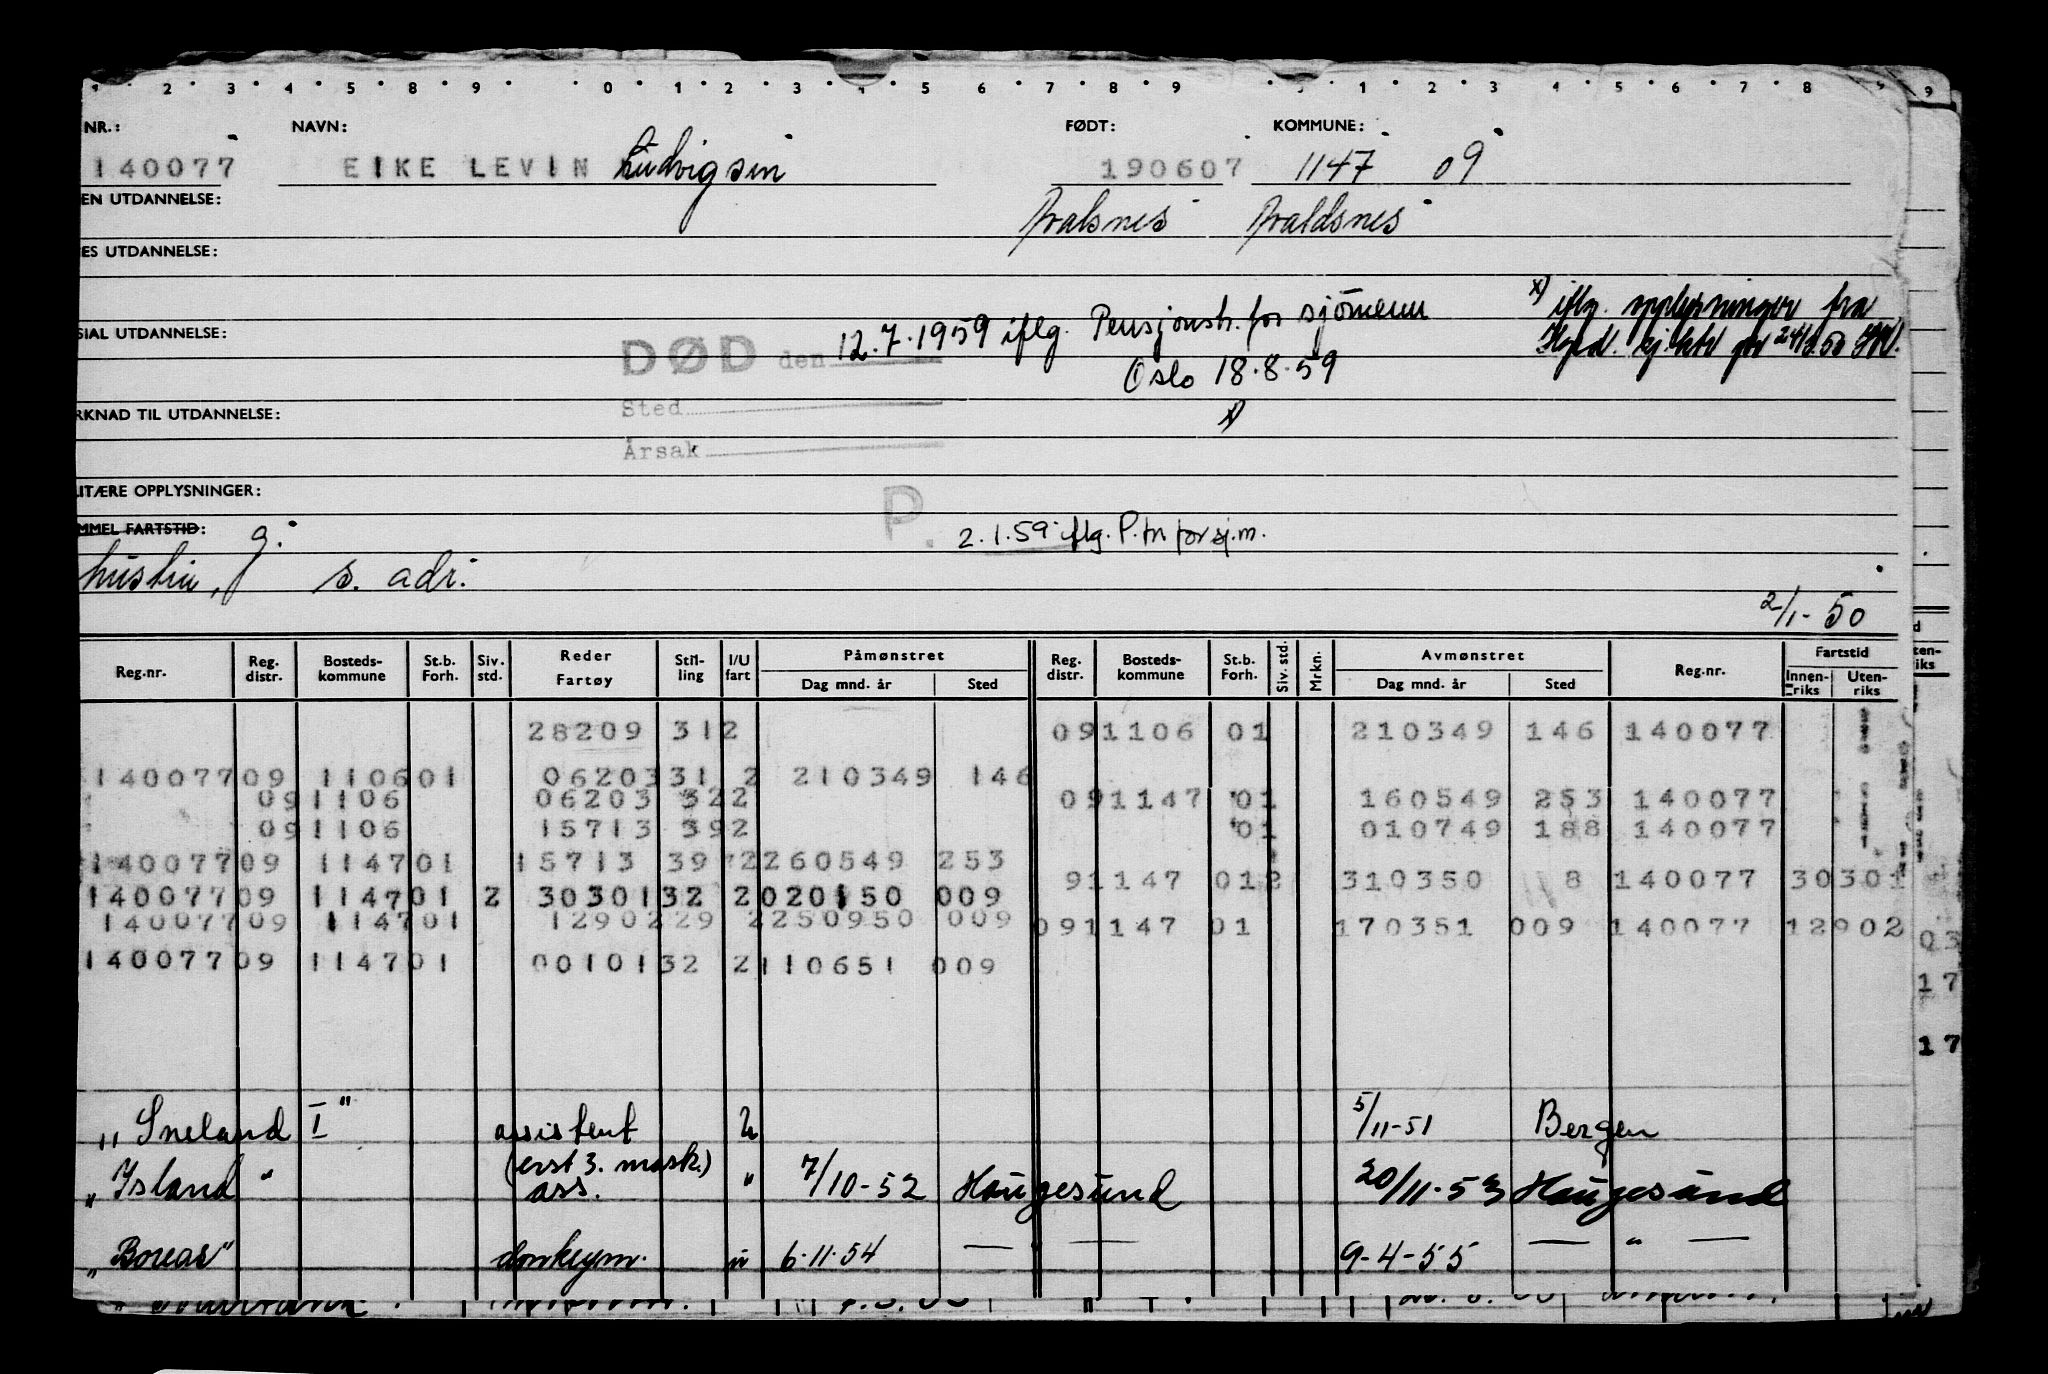 1 2 3 4 5 8 9 0 1 2 3 4 5 6 7 8 9 1 2 3 4 5 6 7 8 9
NR.: NAVN: FØDT: KOMMUNE:
140077 EIKE LEVIN Ludvigsen 190607 1147 09
EN UTDANNELSE: Avalsnes Avaldsnes
ES UTDANNELSE:
x) iflg. opplysninger fra
SIAL UTDANNELSE: DØD den 12.7.1959 iflg. Pensjonstr. for sjömenn
Oslo 18.8.59
Sted
RKNAD TIL UTDANNELSE: x)
Årsak
ITÆRE OPPLYSNINGER:
P. 2.1.59 iflg. P.tr. for sj.m.
MMEL FARTSTID: g.
hustru, s. adr.
2/1-50
Reg.nr. Reg. distr. Bosteds-kommune St.b. Forh. Siv. std. Reder Fartøy Stil-ling I/U fart Påmønstret Dag mnd. år Sted Reg. distr. Bosteds-kommune St.b. Forh. Siv. std. Mrkn. Avmønstret Dag mnd. år Sted Reg.nr. Fartstid Innen-riks Uten-riks
28209 312 091106 01 210349 146 140077
14007709 110601 0620331 2 210349 146
091106 06203 322 091147 01 160549 253 140077
091106 15713 392 01 010749 188 140077
14007709 114701 15713 39 2260549 253
91147 012 310350 8 140077 30301
14007709 114701 2 3030132 2020150 009
14007709 114701 1290229 2250950 009 091147 01 170351 009 140077 12902
03
14007709 114701 0010132 2110651 009
17
17
„Sneland I" assistent U 5/11-51 Bergen
(erst 3. mask.)
„Island" ass. " 7/10-52 Haugesund 20/11-53 Haugesund
„Boreas" donkeym. u 6.11.54 — " — 9-4-55 — " —